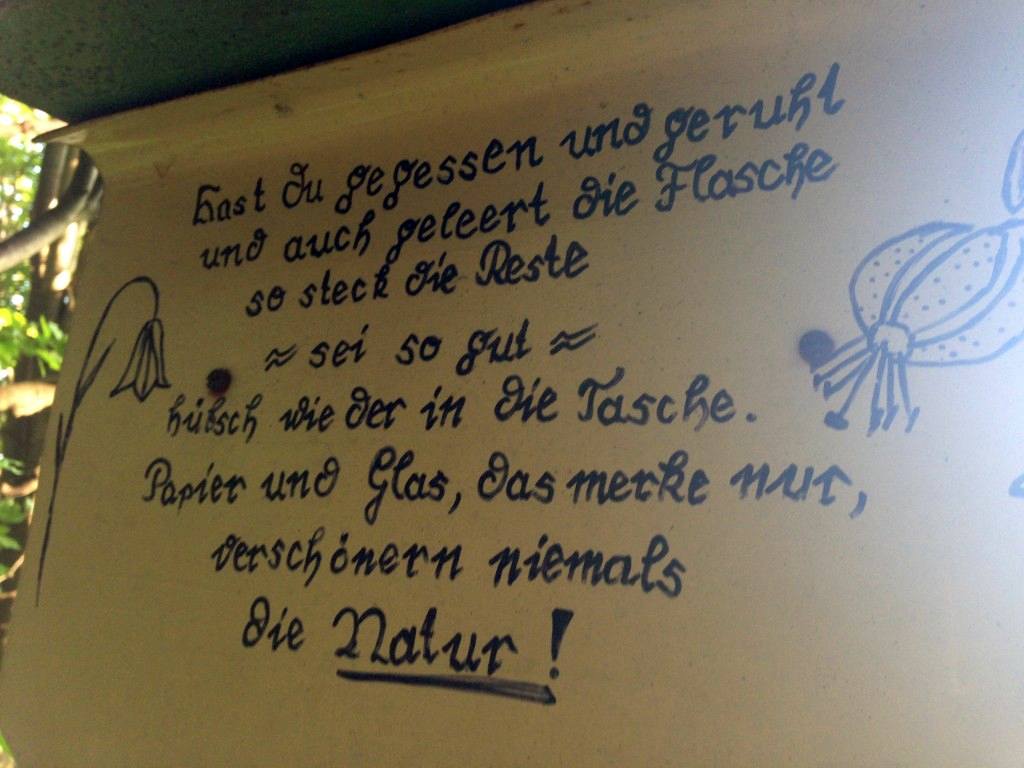 Hast du gegessen und geruht
und auch geleert die Flasche
so steck die Reste
≈ sei so gut ≈
hübsch wieder in die Tasche.
Papier und Glas, das merke nur,
verschönern niemals
die Natur!